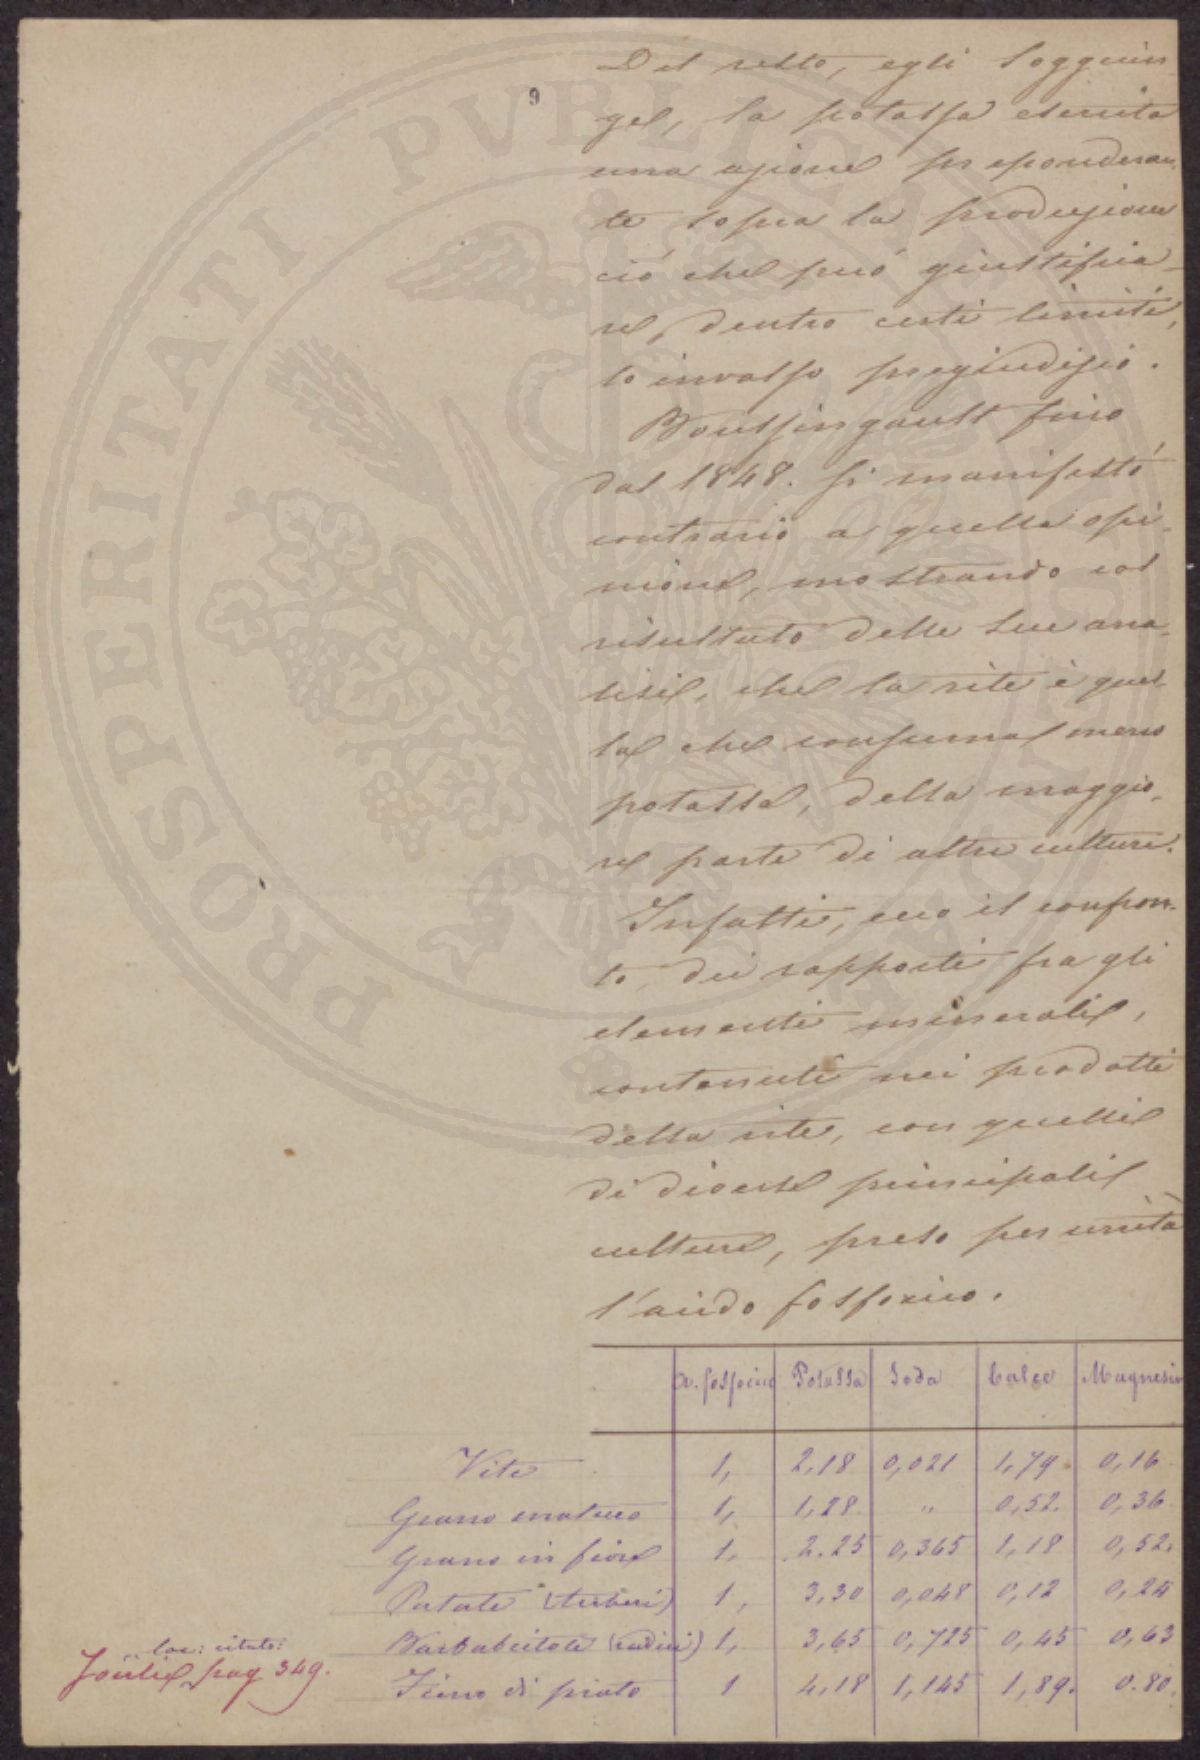 9
Del resto, egli soggiun
ge, la potassa esercita
una azione preponderan
te sopra la produzione
ciò che può giustifica-
re, dentro certi limiti,
lo invalso pregiudizio.
Boussingault fino
dal 1848. si manifestò
contrario a quella opi-
nione, mostrando col
risultato delle sue ana-
lisi, che la vite è quel-
la che consuma meno
potassa, della maggio-
re parte di altre culture.
Infatti, ecco il confron-
to, dei rapporti fra gli
elementi minerali,
contenuti nei prodotti
della vite, con quelli
di diverse principali
culture, preso per unità
l'acido fosforico.
a. fosforico Potassa Soda Calce Magnesia
Vite 1, 2,18 0,021 1,79 0,16
Grano maturo 1, 1,28 " 0,52. 0,36
Grano in fiore 1, 2.25 0,365 1,18 0,52.
Patate (tuberi) 1, 3,30 0,048 0,12 0,24
Barbabietole (radici) 1, 3,65 0,725 0,45 0,63
Fieno di prato 1 4,18 1,145 1,89. 0.80.
loc: citato:
Joulie pag 349.
PROSPERITATI PVBLICAE